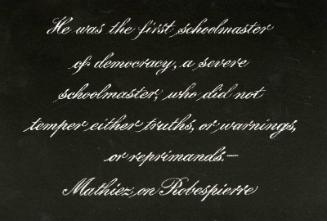 He was the first schoolmaster
of democracy, a severe
schoolmaster, who did not
temper either truths, or warnings,
or reprimands.—
Mathiez, on Robespierre